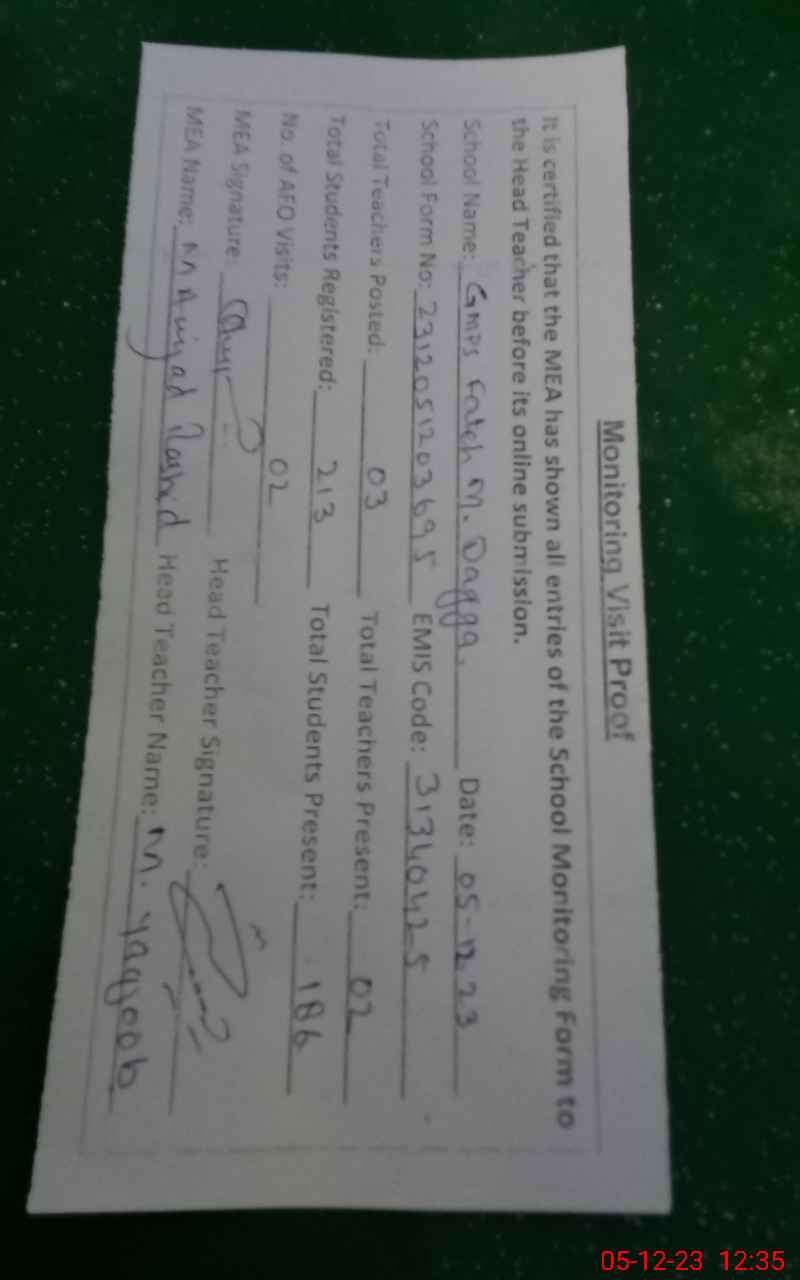 Monitoring Visit Proof
It is certified that the MEA has shown all entries of the School Monitoring Form to
the Head Teacher before its online submission.
School Name: GMPS Fateh M. Dagga. Date: 05-12-23
School Form No: 2312051203695 EMIS Code: 31340425
Total Teachers Posted: 03 Total Teachers Present: 02
Total Students Registered: 213 Total Students Present: 186
No. of AFO Visits: 02
MEA Signature: Head Teacher Signature:
MEA Name: M Amjad Rashid Head Teacher Name: M. Yaqoob
05-12-23 12:35